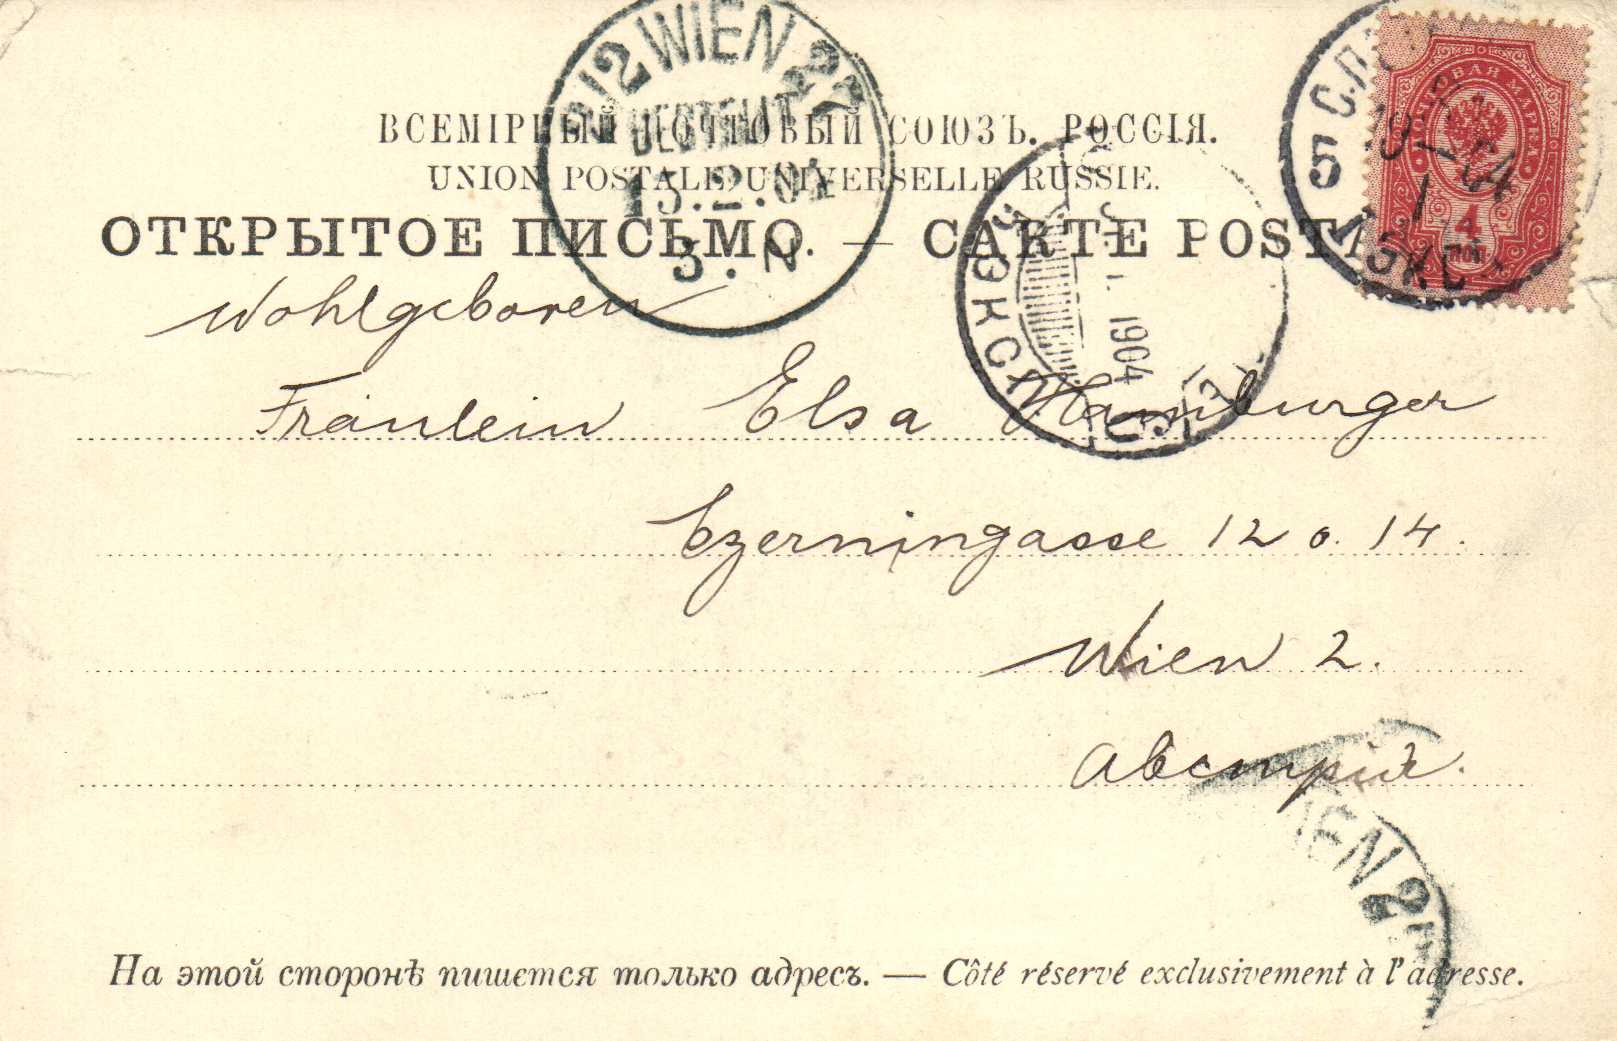 ВСЕМІРНЫЙ ПОЧТОВЫЙ СОЮЗЪ. РОССІЯ.
UNION POSTALE UNIVERSELLE RUSSIE.
ОТКРЫТОЕ ПИСЬМО. — CARTE POSTA
2 WIEN 2
BESTELLT
15.2.04
3. N
5
ПОЧТОВАЯ МАРКА
4
1904
Wohlgeboren
Fräulein Elsa Hamburger
Czerningasse 12 o. 14.
Wien 2.
Австрія.
IEN 2
На этой сторонѣ пишется только адресъ. — Côté réservé exclusivement à l'adresse.